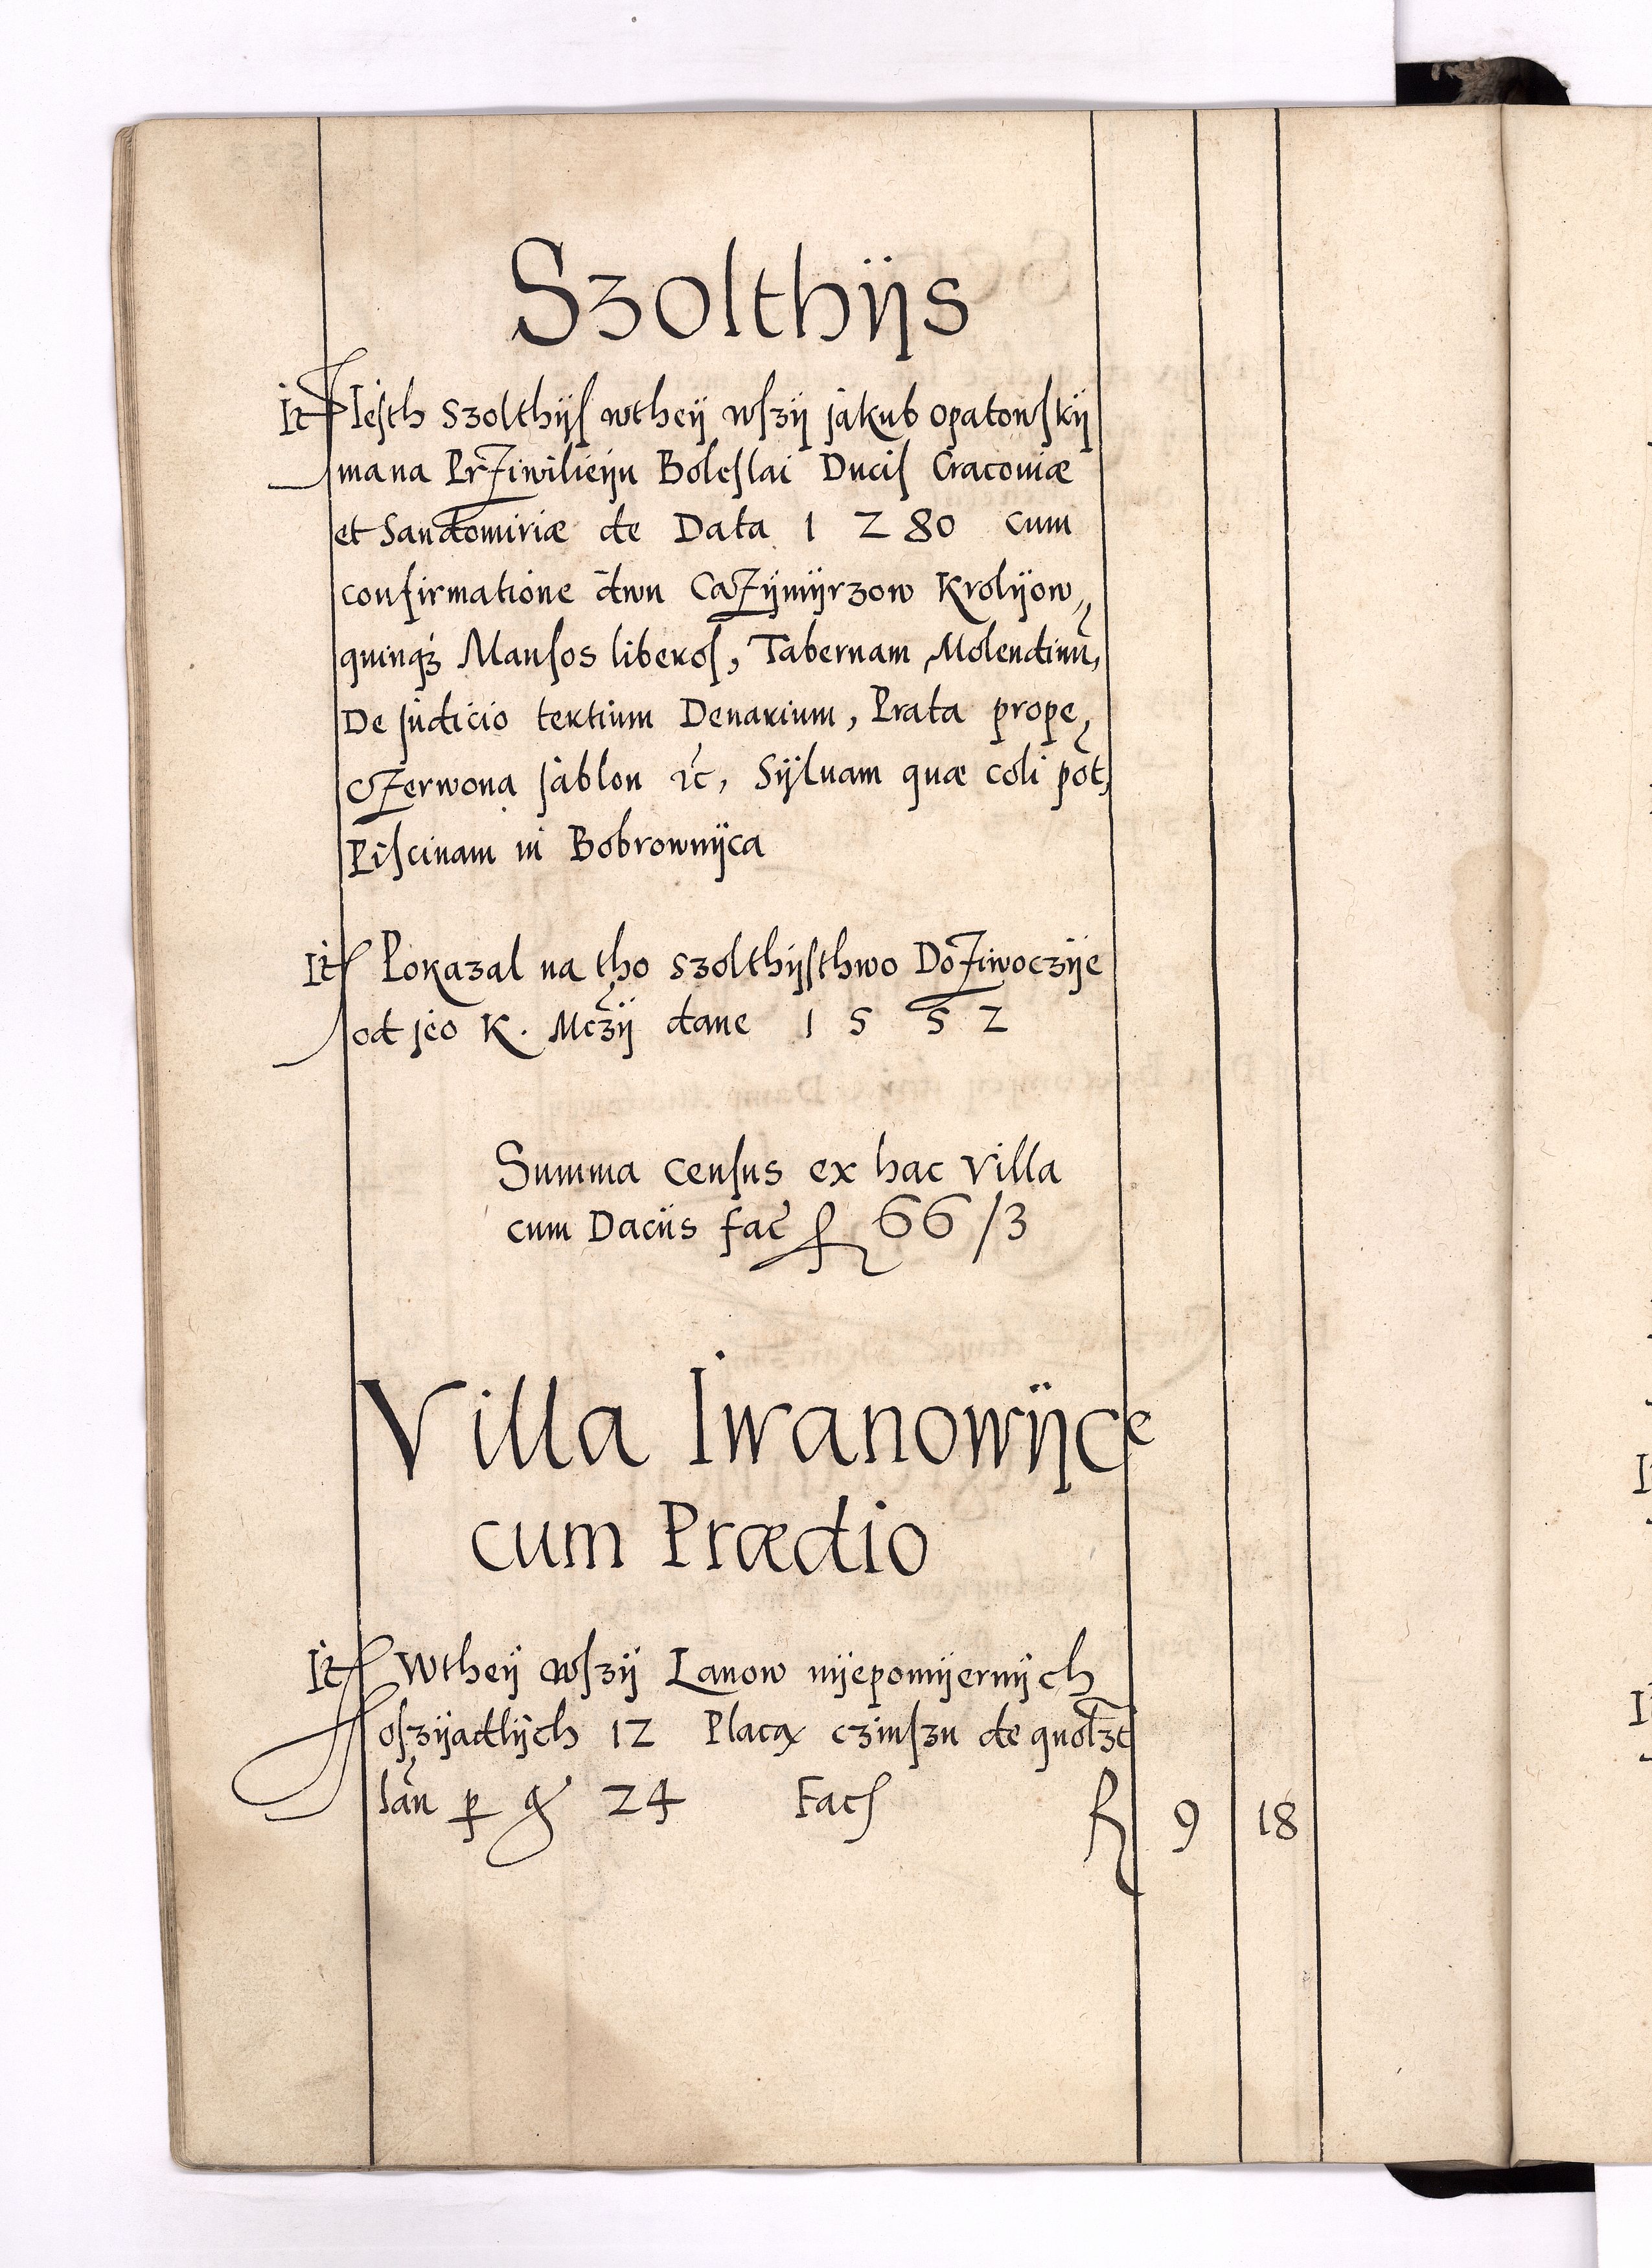 Szolthÿs
It Iesth Szolthÿs wtheÿ wszÿ Jakub Opatowskÿ
ma na Przÿwileÿu Boleslai Ducis Cracoviæ
et Sandomiriæ de Data 1280 cum
confirmatione dwu Cazÿmÿrzow Krolÿow,
quinqꝫ Mansos liberos, Tabernam, Molendinū,
De Judicio tertium Denarium, Prata prope,
Czerwona Jablon ꝛc, Sÿluam quæ coli pot,
Piscinam in Bobrownÿca
It Pokazal na tho Szolthÿsthwo Dozÿwoczÿe
od Jeo K. Mczÿ dane 1552
Summa census ex hac Villa
cum Daciis fac fl 66/3
Villa Iwanowÿce
cum Prædio
It Wtheÿ wszÿ Lanow nÿepomÿernÿch
oszÿadlÿch 12 Placą czinszu de quolꝫt
lan̄ p gr 24 Fac fl 9 18